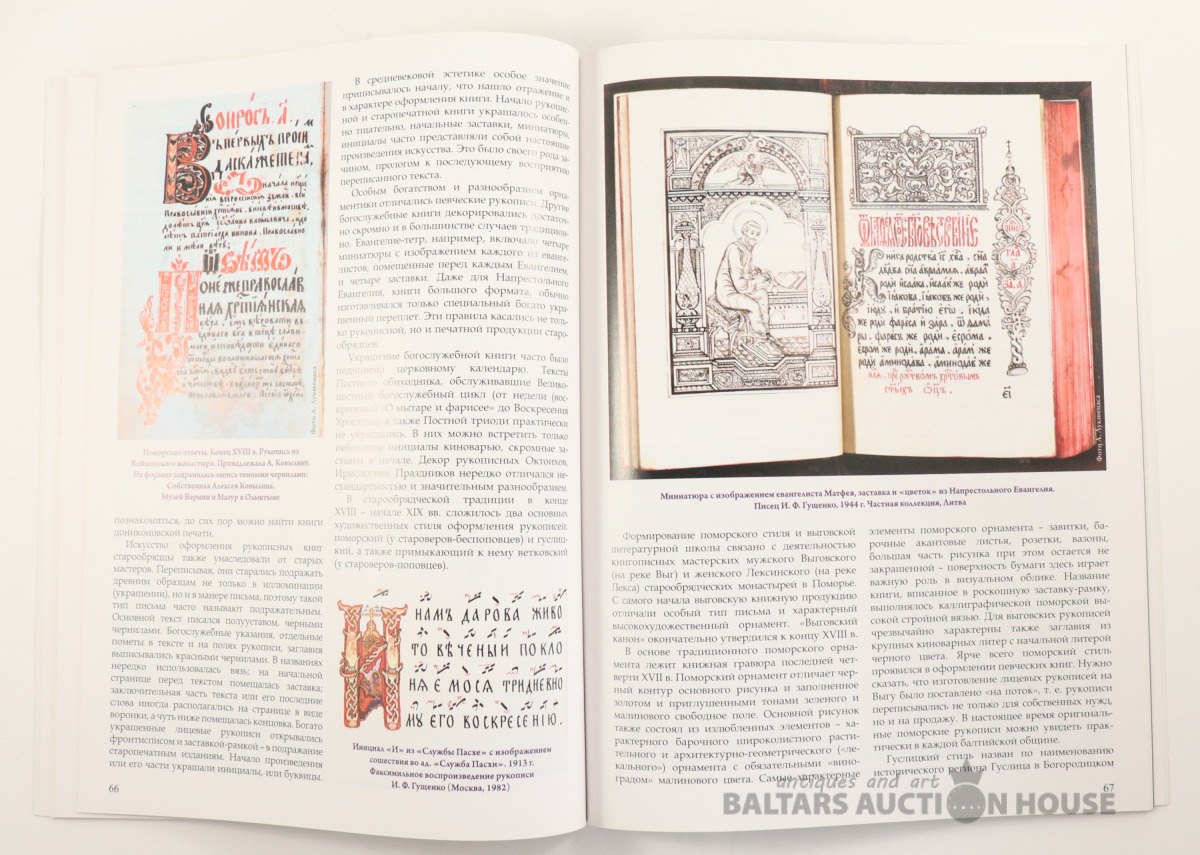 Помѡрские ответы. Конец XVIII в. Рукопись из
Войновского монастыря. Принадлежала А. Ковылину.
На форзаце сохранилась запись темными чернилами:
Собственная Алексея Ковылина.
Музей Вармии и Мазур в Ольштыне
Фото А. Лукшенаса
познакомиться, до сих пор можно найти книги
дониконовской печати.
Искусство оформления рукописных книг
старообрядцы также унаследовали от старых
мастеров. Переписывая, они старались подражать
древним образцам не только в иллюминации
(украшении), но и в манере письма, поэтому такой
тип письма часто называют подражательным.
Основной текст писался полууставом, черными
чернилами. Богослужебные указания, отдельные
пометы в тексте и на полях рукописи, заглавия
выписывались красными чернилами. В названиях
нередко использовалась вязь; на начальной
странице перед текстом помещалась заставка;
заключительная часть текста или его последние
слова иногда располагались на странице в виде
воронки, а чуть ниже помещалась концовка. Богато
украшенные лицевые рукописи открывались
фронтисписом и заставкой-рамкой – в подражание
старопечатным изданиям. Начало произведения
или его части украшали инициалы, или буквицы.
66
В средневековой эстетике особое значение
приписывалось началу, что нашло отражение и
в характере оформления книги. Начало рукопис-
ной и старопечатной книги украшалось особен-
но тщательно, начальные заставки, миниатюры,
инициалы часто представляли собой настоящие
произведения искусства. Это было своего рода за-
чином, прологом к последующему восприятию
переписанного текста.
Особым богатством и разнообразием орна-
ментики отличались певческие рукописи. Другие
богослужебные книги декорировались достаточ-
но скромно и в большинстве случаев традицион-
но. Евангелие-тетр, например, включало четыре
миниатюры с изображением каждого из еванге-
листов, помещенные перед каждым Евангелием,
и четыре заставки. Даже для Напрестольного
Евангелия, книги большого формата, обычно
изготавливался только специальный богато укра-
шенный переплет. Эти правила касались не толь-
ко рукописной, но и печатной продукции старо-
обрядцев.
Украшение богослужебной книги часто было
подчинено церковному календарю. Тексты
Постного обиходника, обслуживавшие Велико-
постный богослужебный цикл (от недели (вос-
кресенья) «О мытаре и фарисее» до Воскресения
Христова), а также Постной триоди практически
не украшались. В них можно встретить только
небольшие инициалы киноварью, скромные за-
ставки в начале. Декор рукописных Октоихов,
Ирмологиев, Праздников нередко отличался не-
стандартностью и значительным разнообразием.
В старообрядческой традиции в конце
XVIII – начале XIX вв. сложилось два основных
художественных стиля оформления рукописей:
поморский (у староверов-беспоповцев) и гуслиц-
кий, а также примыкающий к нему ветковский
(у староверов-поповцев).
НАМЪ ДАРОВА ЖИВО
ТО ВѢЧЕНЫИ ПОКЛО
НЯЕ МОСЯ ТРИДНЕВНО
МУ ЕГО ВОСКРЕСЕНІЮ.
Инициал «И» из «Службы Пасхе» с изображением
сошествия во ад. «Служба Пасхи». 1913 г.
Факсимильное воспроизведение рукописи
И. Ф. Гущенко (Москва, 1982)
Фото А. Лукшенаса
Миниатюра с изображением евангелиста Матфея, заставка и «цветок» из Напрестольного Евангелия.
Писец И. Ф. Гущенко, 1944 г. Частная коллекция, Литва
Формирование поморского стиля и выговской
литературной школы связано с деятельностью
книгописных мастерских мужского Выговского
(на реке Выг) и женского Лексинского (на реке
Лекса) старообрядческих монастырей в Поморье.
С самого начала выговскую книжную продукцию
отличали особый тип письма и характерный
высокохудожественный орнамент. «Выговский
канон» окончательно утвердился к концу XVIII в.
В основе традиционного поморского орна-
мента лежит книжная гравюра последней чет-
верти XVII в. Поморский орнамент отличает чер-
ный контур основного рисунка и заполненное
золотом и приглушенными тонами зеленого и
малинового свободное поле. Основной рисунок
также состоял из излюбленных элементов – ха-
рактерного барочного широколистного расти-
тельного и архитектурно-геометрического («ле-
кального») орнамента с обязательными «вино-
градом» малинового цвета. Самые характерные
элементы поморского орнамента – завитки, ба-
рочные акантовые листья, розетки, вазоны,
большая часть рисунка при этом остается не
закрашенной – поверхность бумаги здесь играет
важную роль в визуальном облике. Название
книги, вписанное в роскошную заставку-рамку,
выполнялось каллиграфической поморской вы-
сокой стройной вязью. Для выговских рукописей
чрезвычайно характерны также заглавия из
крупных киноварных литер с начальной литерой
черного цвета. Ярче всего поморский стиль
проявился в оформлении певческих книг. Нужно
сказать, что изготовление лицевых рукописей на
Выгу было поставлено «на поток», т. е. рукописи
переписывались не только для собственных нужд,
но и на продажу. В настоящее время оригиналь-
ные поморские рукописи можно увидеть прак-
тически в каждой балтийской общине.
Гуслицкий стиль назван по наименованию
исторического региона Гуслица в Богородицком
67
antiques and art
BALTARS AUCTION HOUSE